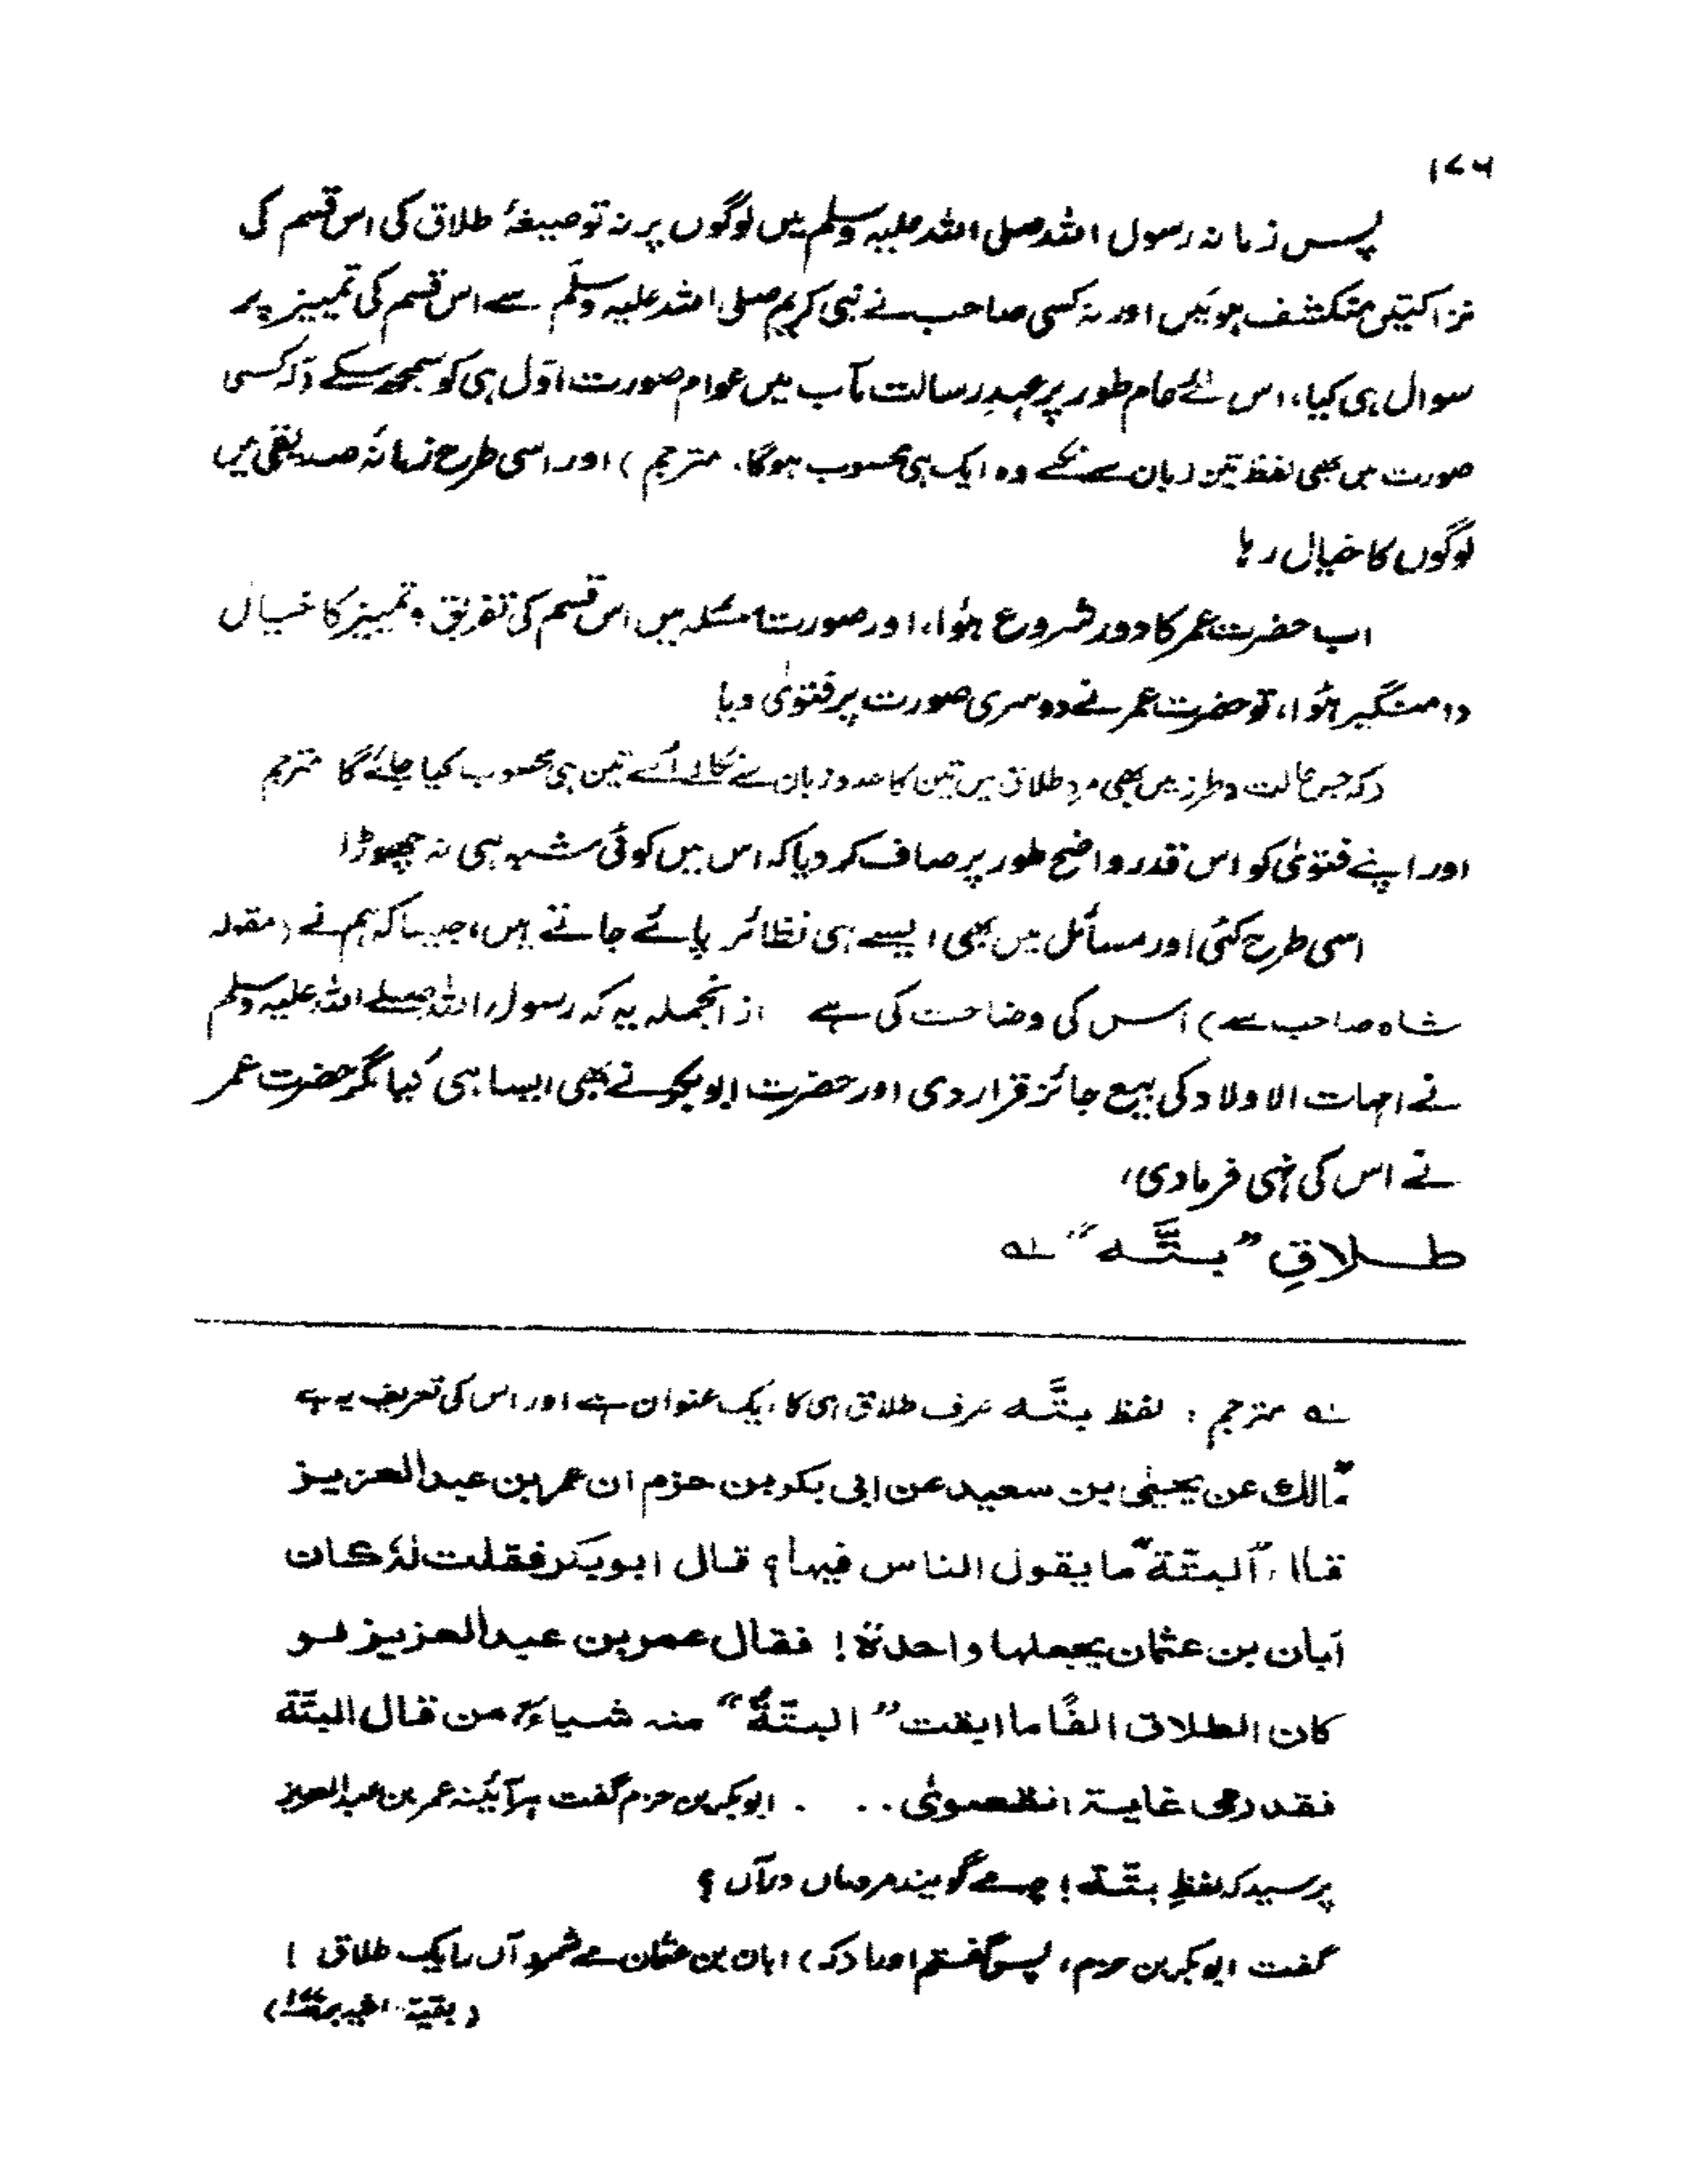 ۱۷۶
پس زمانہ رسول اللہ صلی اللہ علیہ وسلم میں لوگوں پر نہ تو صیغۂ طلاق کی اس قسم کی
نزاکتیں منکشف ہوئیں اور نہ کسی صاحب نے نبی کریم صلی اللہ علیہ وسلم سے اس قسم کی تمییز پر
سوال ہی کیا، اس لئے عام طور پر عہدِ رسالت مآب میں عوام صورت اوّل ہی کو سمجھ سکے (کہ کسی
صورت میں بھی لفظ تین زبان سے نکلے وہ ایک ہی محسوب ہوگا۔ مترجم) اور اسی طرح زمانۂ صدیقی میں
لوگوں کا خیال رہا
اب حضرت عمر کا دور شروع ہوُا، اور صورت مسئلہ میں اس قسم کی تفریق و تمییز کا خیال
دامنگیر ہوُا، تو حضرت عمر نے دوسری صورت پر فتویٰ دیا
(کہ جس حالت و طرز میں بھی مرد طلاق میں تین کا عدد زبان سے نکالے اُسے تین ہی محسوب کیا جائے گا مترجم
اور اپنے فتویٰ کو اس قدر واضح طور پر صاف کر دیا کہ اس میں کوئی شبہ ہی نہ چھوڑا
اسی طرح کئی اور مسائل میں بھی ایسے ہی نظائر پائے جاتے ہیں، جیسا کہ ہم نے (مقولہ
شاہ صاحب ہے) اس کی وضاحت کی ہے ازانجملہ یہ کہ رسول اللہ صلے اللہ علیہ وسلم
نے امہات الاولاد کی بیع جائز قرار دی اور حضرت ابوبکر نے بھی ایسا ہی کیا مگر حضرت عمر
نے اس کی نہی فرمادی،
طلاقِ ”بتَّہ“ لہ
لہ مترجم : لفظ بتَّہ صرف طلاق ہی کا ایک عنوان ہے اور اس کی تعریف یہ ہے
”مالك عن يحيىٰ بن سعيد عن ابى بكر بن حزم ان عمر بن عبدالعزيز
قال ”البتّة“ ما يقول الناس فيها؟ قال ابوبكر فقلت لهٗ كان
أبان بن عثمان يجعلها واحدة! فقال عمر بن عبدالعزيز لو
كان الطلاق الفًا ما ابقت ”البتّةُ“ منه شياءً من قال البتّة
فقد رمى غاية القصوىٰ . . . ابوبکر بن حزم گفت ہر آئینہ عمر بن عبدالعزیز
پرسید کہ لفظِ بتّہ! چہ مے گویند مردماں درآں ؟
گفت ابوبکر بن حزم، پس گفتم اورا (کہ) ابان بن عثمان مے شمرد آں را یک طلاق !